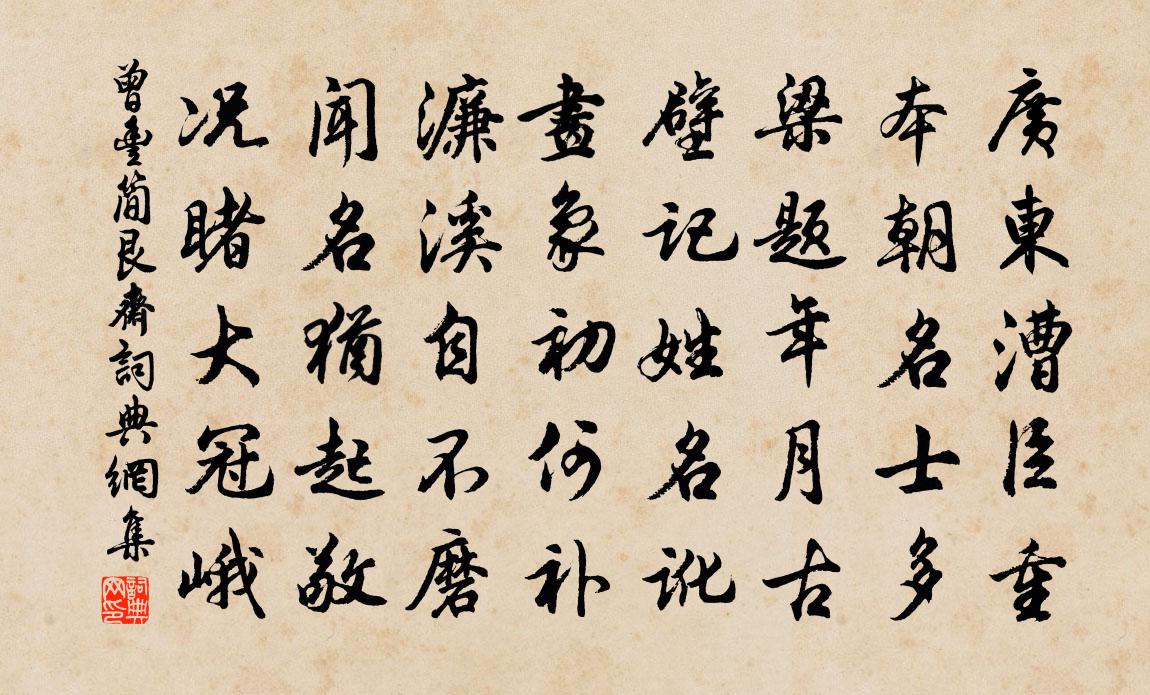 廣東漕臣重
本朝名士多
梁題年月古
壁記姓名訛
畫象初何补
濂溪自不磨
聞名猶起敬
况睹大冠峨
曾豐簡艮齋詞典網集
詞典网印